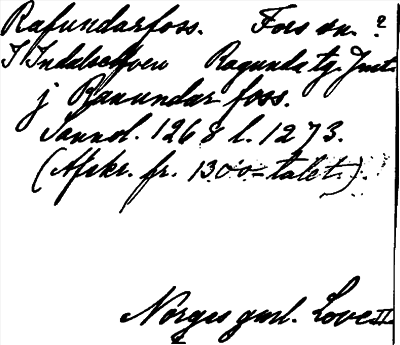 Rafundarfoss. Fors ön. ?
I Indalselfven Ragunda tg. Jmtl.
j Ranundar foss.
Sannol. 1268 l. 1273.
(Afskr. fr. 1300-talet.).
Norges gml. Love II